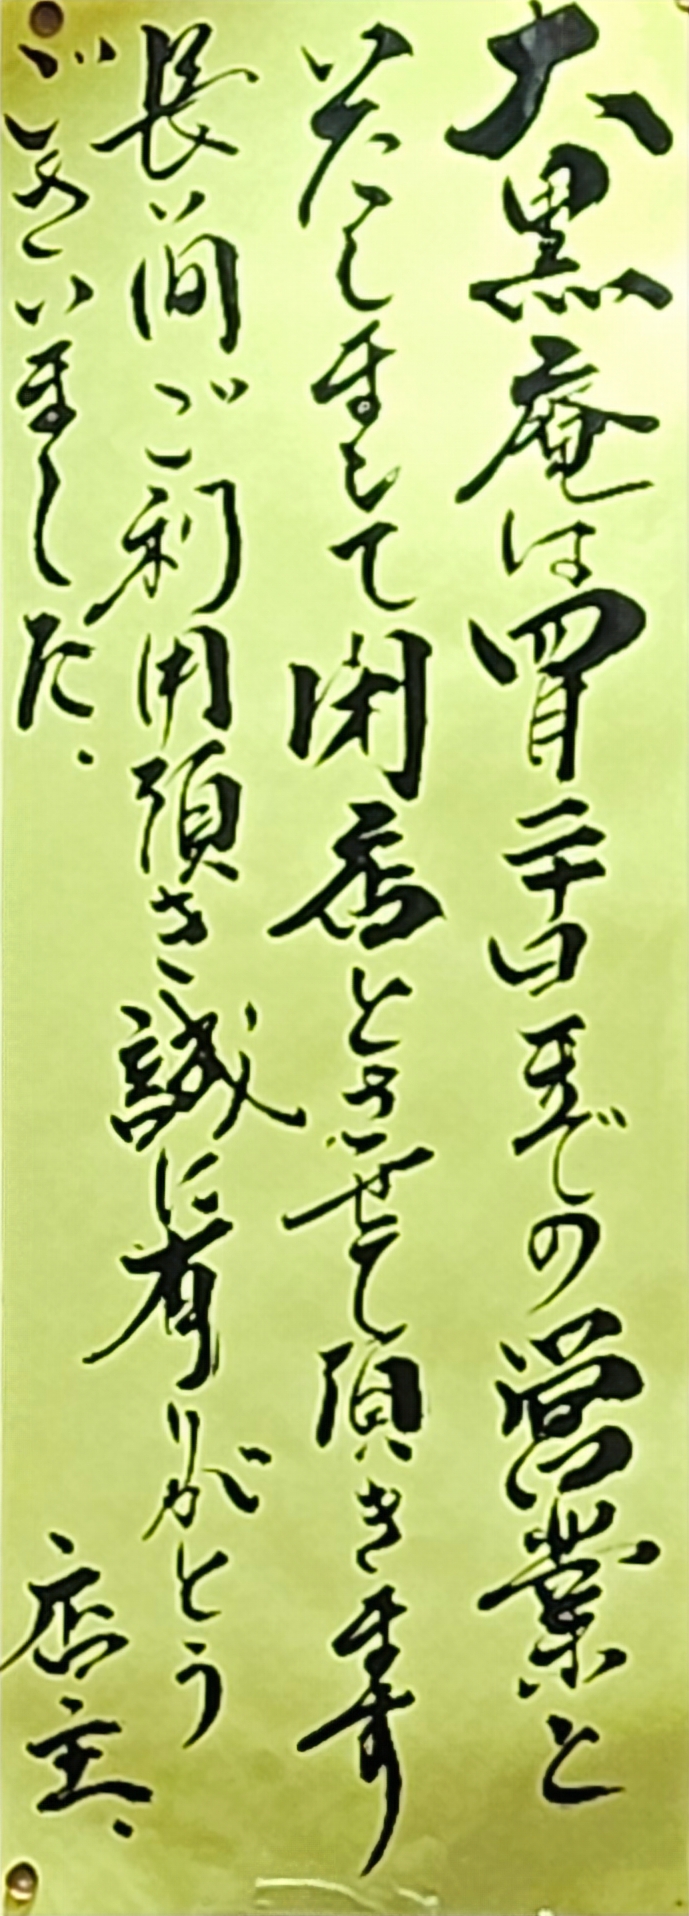 大黒庵は四月二十日までの営業と
いたしまして閉店とさせて頂きます
長い間ご利用頂き誠に有りがとう
ございました、
店主、